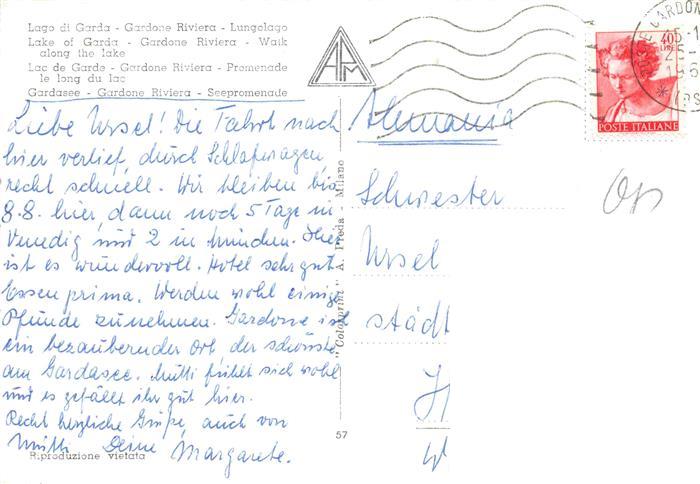 Lago di Garda - Gardone Riviera - Lungolago
Lake of Garda - Gardone Riviera - Walk
along the lake
Lac de Garde - Gardone Riviera - Promenade
le long du lac
Gardasee - Gardone Riviera - Seepromenade
Liebe Ursel! Die Fahrt nach
hier verlief, durch Schlafwagen,
recht schnell. Wir bleiben bis
8.8. hier, dann noch 5 Tage in
Venedig und 2 in München. Hier
ist es wundervoll. Hotel sehr gut
Essen prima. Werden wohl einige
Pfunde zunehmen. Gardone ist
ein bezaubernder Ort, der schönste
am Gardasee. Mutti fühlt sich wohl
und es gefällt ihr gut hier.
Recht herzliche Grüße, auch von
Mutti Deine Margarete.
Riproduzione vietata
"Colorprint" A. Preda - Milano
57
40
LIRE
POSTE ITALIANE
Alemania
Schwester
Ursel
städt